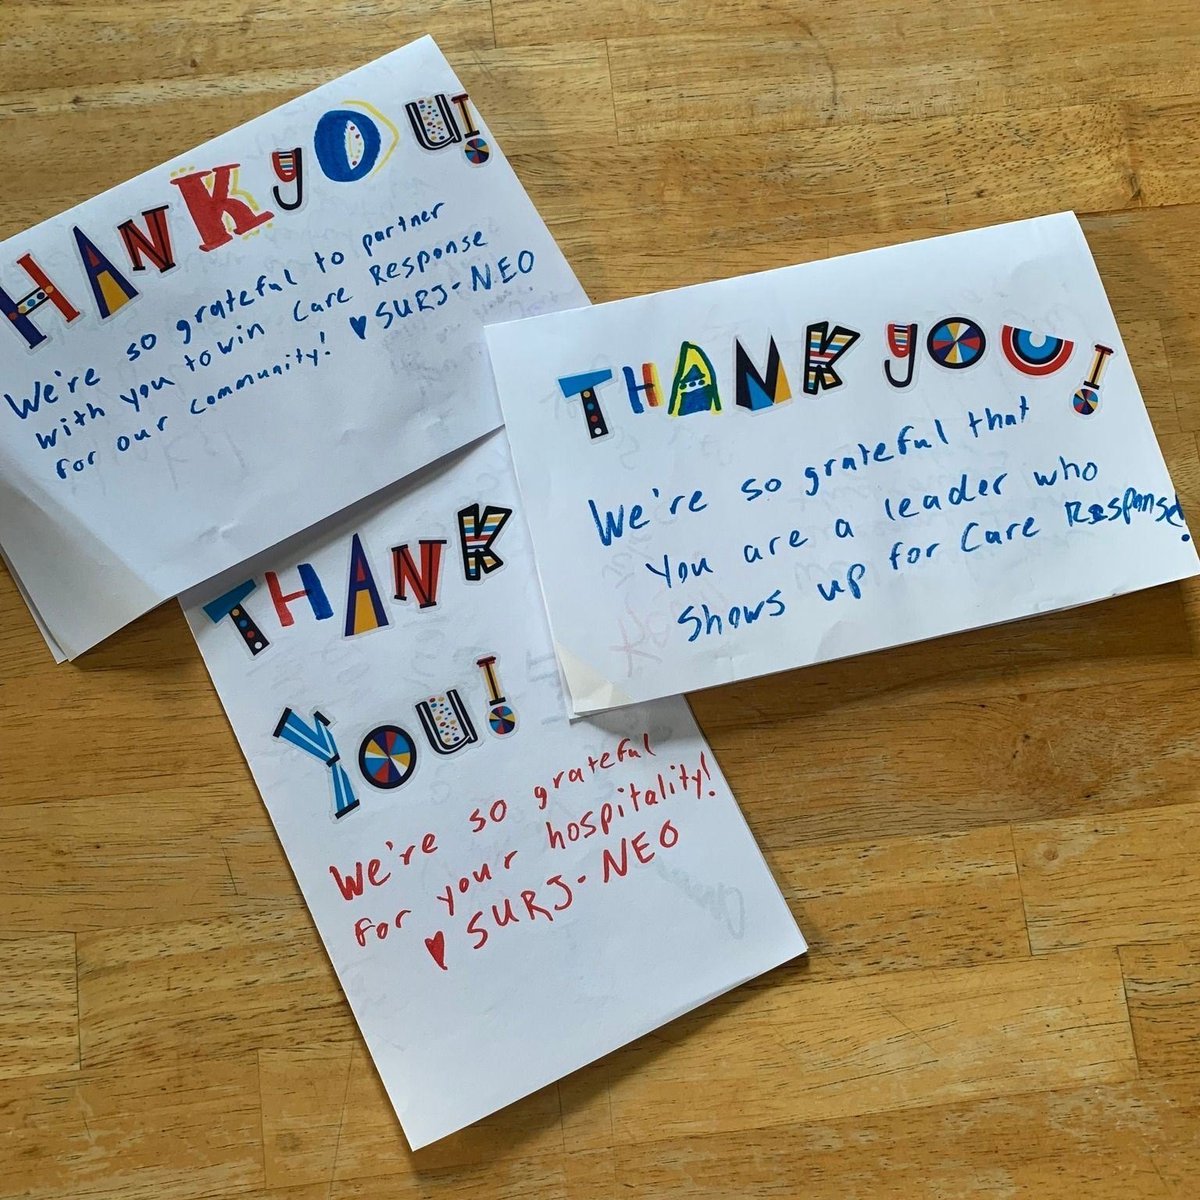 HANK YOU!
We're so grateful to partner
with you to win Care Response
for our community! ♥ SURJ-NEO
THANK YOU!
We're so grateful that
You are a leader who
shows up for Care Response!
THANK
YOU!
We're so grateful
for your hospitality!
♥ SURJ-NEO